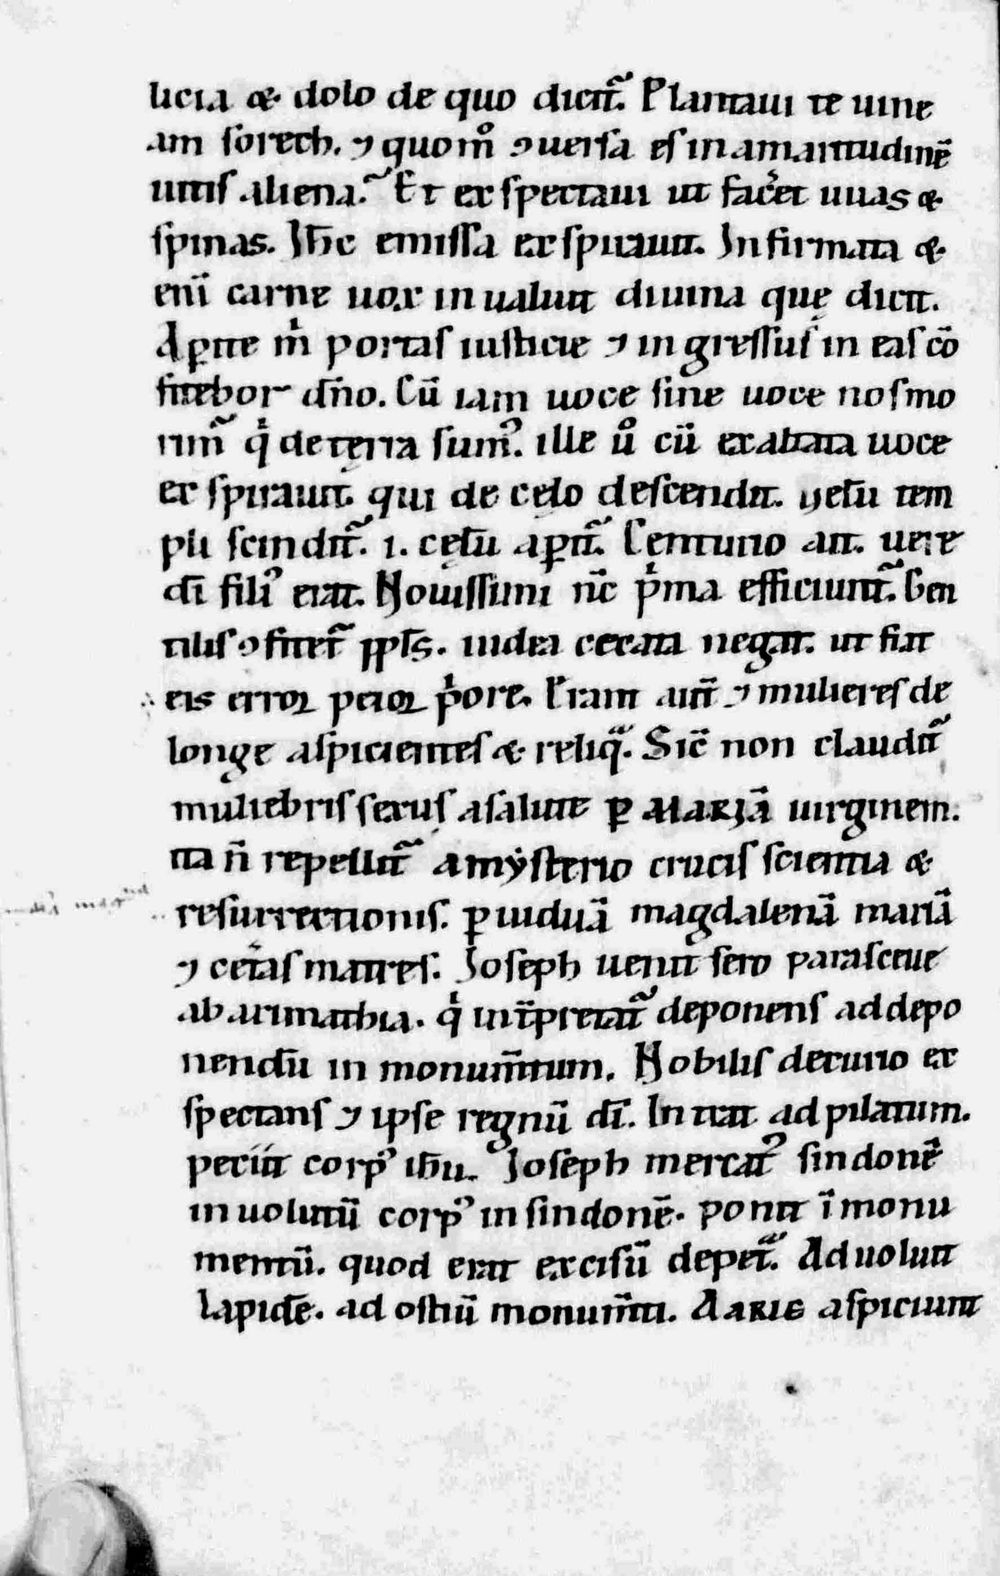 licia &. dolo de quo dicit᷑. Plantaui te uine
am sorech. ⁊ quom̊ ꝯuersa es in amaritudinē
uitis aliena. Et exspectaui ut fac̉et uuas &
spinas. Ih̄c emissa exspirauit. Infirmata &
enī carne uox inualuit diuina quę dicit.
Aꝑite m̍ portas iusticie ⁊ ingressus in eas cō
fitebor dn̄o. Cū iam uoce sine uoce nos mo
rim᷑ q̍ de terra sumꝰ. ille ů cū exaltata uoce
exspirauit. qui de cęlo descendit. Velū tem
pli scindit᷑. i. cęlū aꝑit᷑. Centurio ait. uere
dī filiꝰ erat. Nouissimi nc̄ p̍ma efficiunt᷑. Gen
tilis ꝯfitet᷑ ppl̄s. iudea cecata negat. ut fiat
eis error peior p̍ore. Erant aut̄ ⁊ mulieres de
longe aspicientes & reliqᷓ. Sic̄ non claudit᷑
muliebris sexus a salute ꝑ MARIĀ uirginem.
ita n̄ repellit᷑ a mẏsterio crucis scientia &
resurrectionis. ꝑ uiduā magdalenā mariā
⁊ cet̉as matres. Joseph uenit sero parasceue
ab arimathia. q̍ int̄pretat᷑ deponens ad depo
nendū in monum̄tum. Nobilis decurio ex
spectans ⁊ ipse regnū dī. Intrat ad pilatum.
petiit corpꝰ ih̄u. Joseph mercatꝰ sindonē
inuolutū corpꝰ in sindonē. ponit ī monu
mentū. quod erat excisū de petᷓ. Aduoluit
lapidē. ad ostiū monum̄ti. MARIE aspiciunt